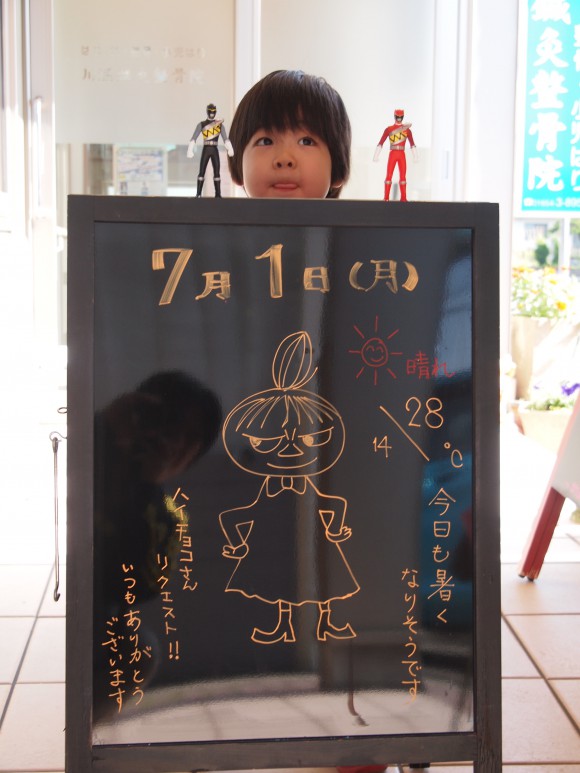 7月1日(月)
晴れ
28
14
℃
今日も暑く
なりそうです
ハイチョコさん
リクエスト!!
いつもありがとう
ございます
鍼灸整骨院